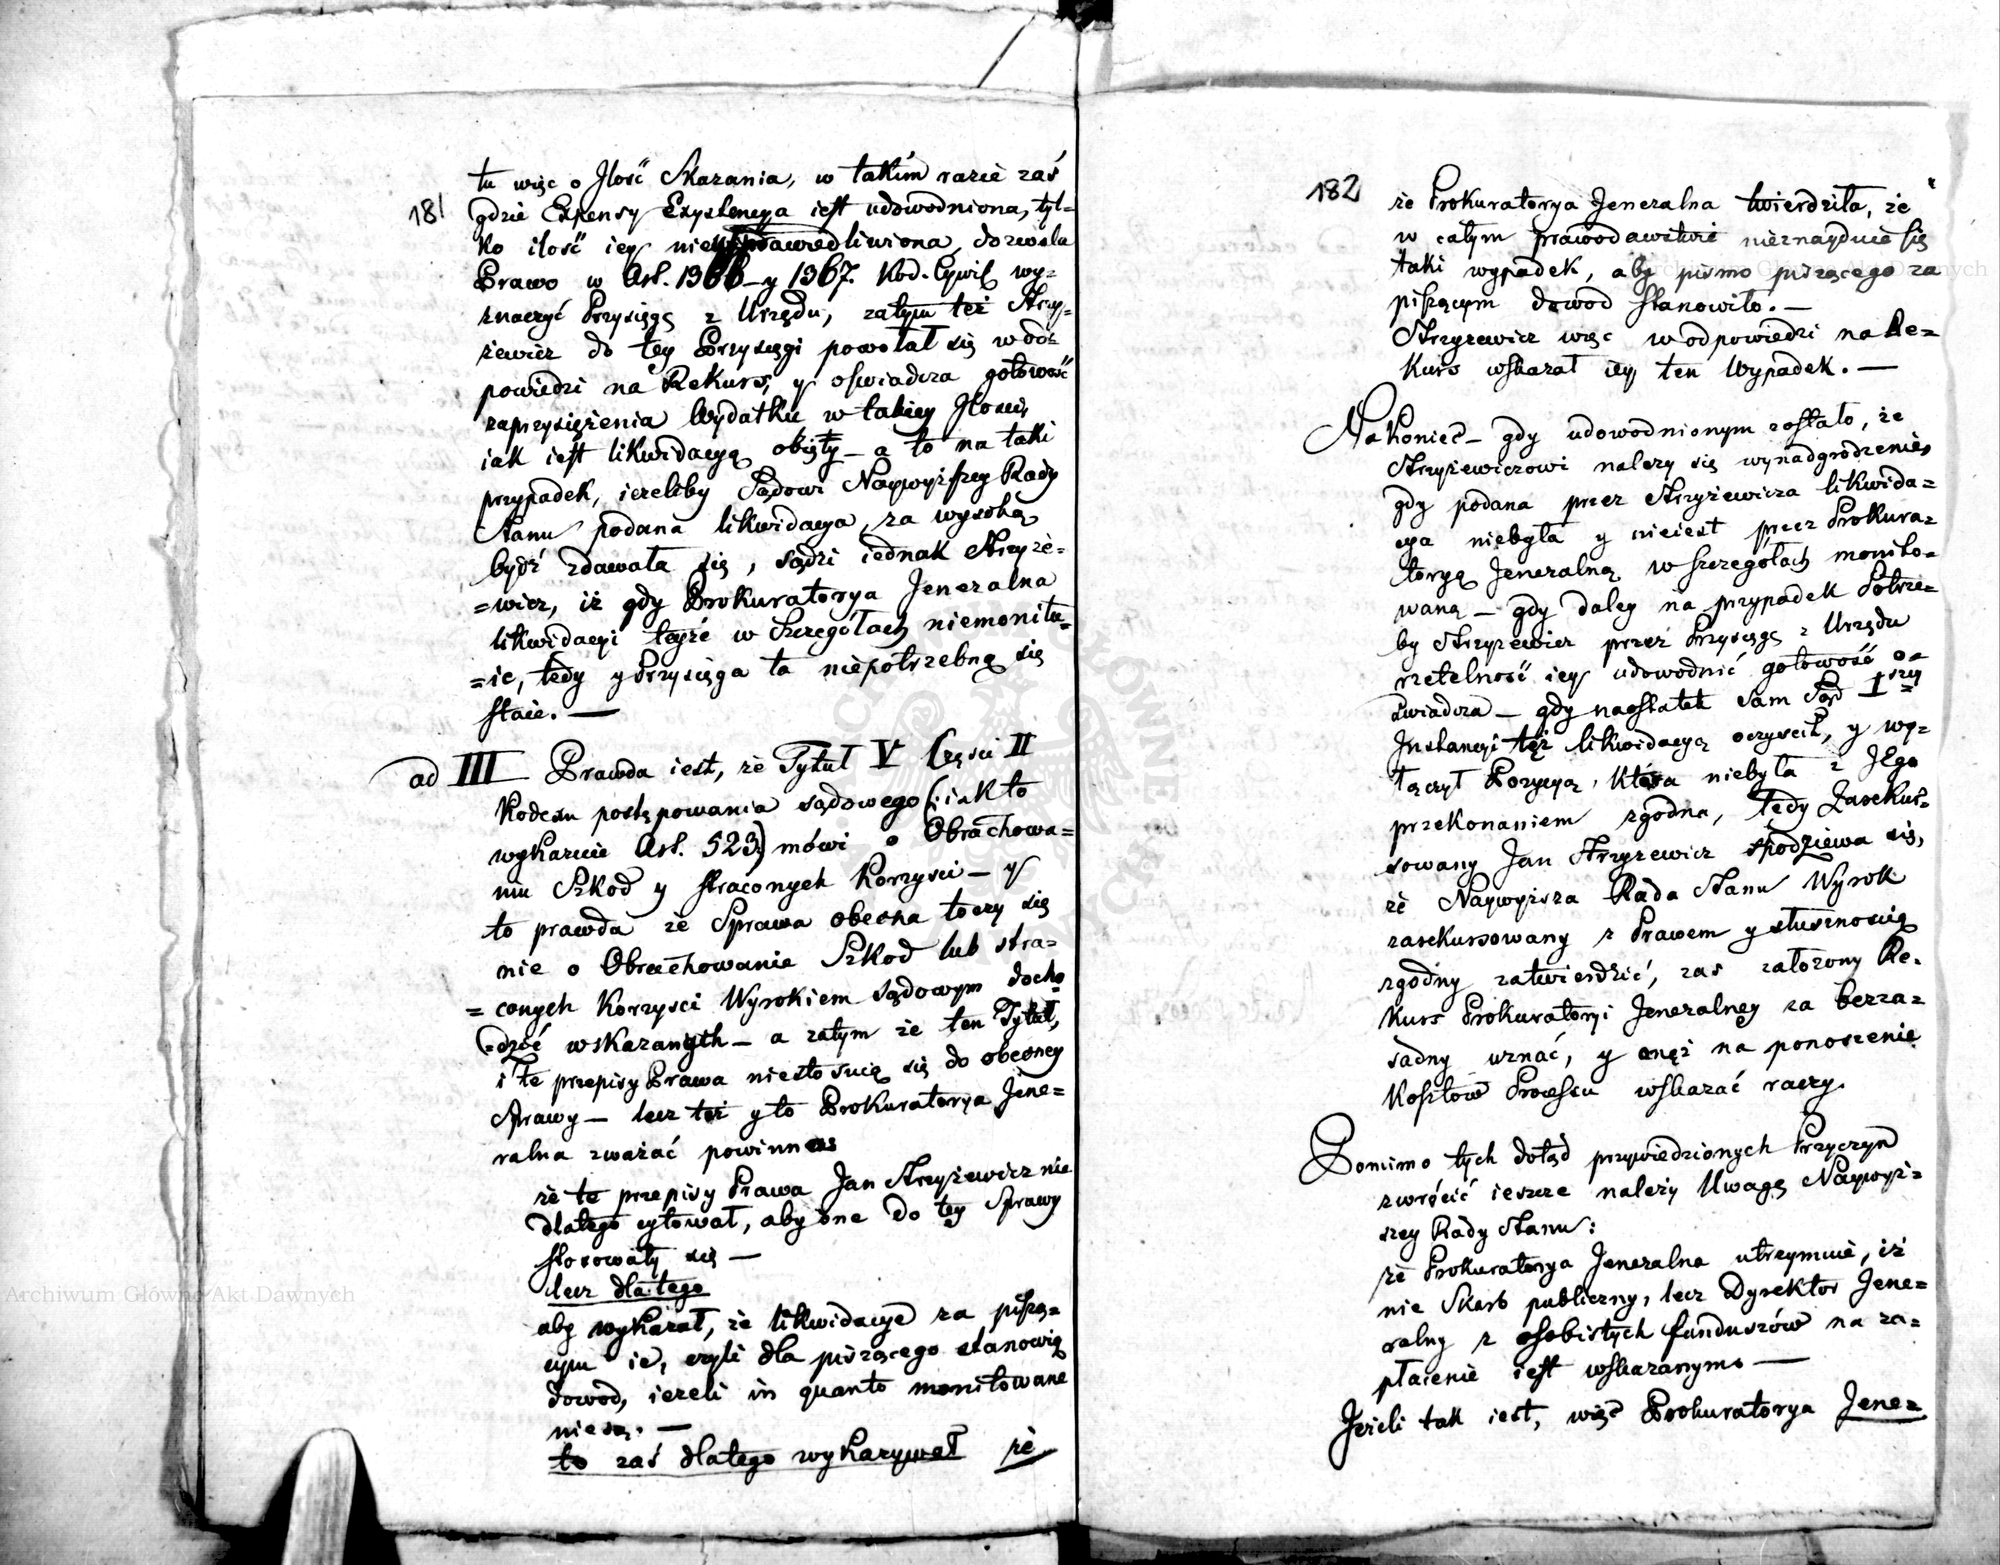 181
tu więc o Jlość Skazania, w takim razie zaś
gdzie Expensy Exystencya iest udowodniona, tyl=
ko ilość iey nieusprawiedliwiona, dozwala
Prawo w Art. 1366 y 1367. Kod. Cywil wy=
znaczyć Przysięgę z Urzędu, zatym też Strzy=
żewicz do tey Przysięgi powołał się w od=
powiedzi na Rekurs, y oświadcza gotowość
zaprzysiężenia Wydatku w takiey Jlości,
iak iest likwidacyą obięty – a to na taki
przypadek, ieżeliby Sądowi Naywyższey Rady
Stanu podana likwidacya za wysoką
bydź zdawała się, sądzi iednak Strzyże=
=wicz, iż gdy Prokuratorya Jeneralna
likwidacyi teyże w Szczegółach niemonitu=
=ie, tedy y Przysięga ta niepotrzebną się
staie. —
ad III Prawda iest, że Tytuł V Części II
Kodexu postępowania sądowego (: iak to
wykazuie Art. 523) mówi o Obrachowa=
niu Szkod y straconych Korzyści – y
to prawda że Sprawa obecna toczy się
nie o Obrachowanie Szkod lub stra=
= conych Korzyści Wyrokiem sądowym docho=
=dzić wskazanych – a zatym że ten Tytuł,
i te przepisy Prawa niestosuią się do obecney
Sprawy – lecz też y to Prokuratorya Jene=
ralna zważać powinna
że te przepisy Prawa Jan Strzyżewicz nie
dlatego cytował, aby one do tey Sprawy
stosowały się —
lecz dlatego
aby wykazał, że likwidacye za piszą=
cym ie, czyli dla piszącego stanowią
dowod, ieżeli in quanto monitowane
nie są. —
to zaś dlatego wykazywał że
182
że Prokuratorya Jeneralna twierdziła, że
w całym prawodawstwie nieznayduie się
taki wypadek, aby pismo piszącego za
piszącym dowod stanowiło. —
Strzyżewicz więc w odpowiedzi na Re=
kurs wskazał iey ten Wypadek. —
Nakoniec – gdy udowodnionym zostało, że
Strzyżewiczowi należy się wynadgrodzenie,
gdy podana przez Strzyżewicza likwida=
cya niebyła y nieiest przez Prokura=
toryą Jeneralną w szczegółach monito=
waną – gdy daley na przypadek Potrze=
by Strzyżewicz przez Przysięgę z Urzędu
rzetelność iey udowodnić gotowość o=
świadcza – gdy naostatek sam Sąd 1szey
Jnstancyi też likwidacyą oczyścił, y wy=
łączył Pozycyą, która niebyła z Jego
przekonaniem zgodna, tedy Zarekur=
sowany Jan Strzyżewicz spodziewa się,
że Naywyższa Rada Stanu Wyrok
zarekursowany z Prawem y słusznością
zgodny zatwierdzić, zaś założony Re=
kurs Prokuratoryi Jeneralney za bezza=
sadny uznać, y onęż na ponoszenie
Kosztow Processu wskazać raczy.
Pomimo tych dotąd przywiedzionych Przyczyn
zwrócić ieszcze należy Uwagę Naywyż=
szey Rady Stanu:
że Prokuratorya Jeneralna utrzymuie, iż
nie Skarb publiczny, lecz Dyrektor Jene=
ralny z osobistych funduszów na za=
płacenie iest wskazanym —
Jeżeli tak iest, więc Prokuratorya Jene=
Archiwum Główne Akt Dawnych
Archiwum Główne Akt Dawnych